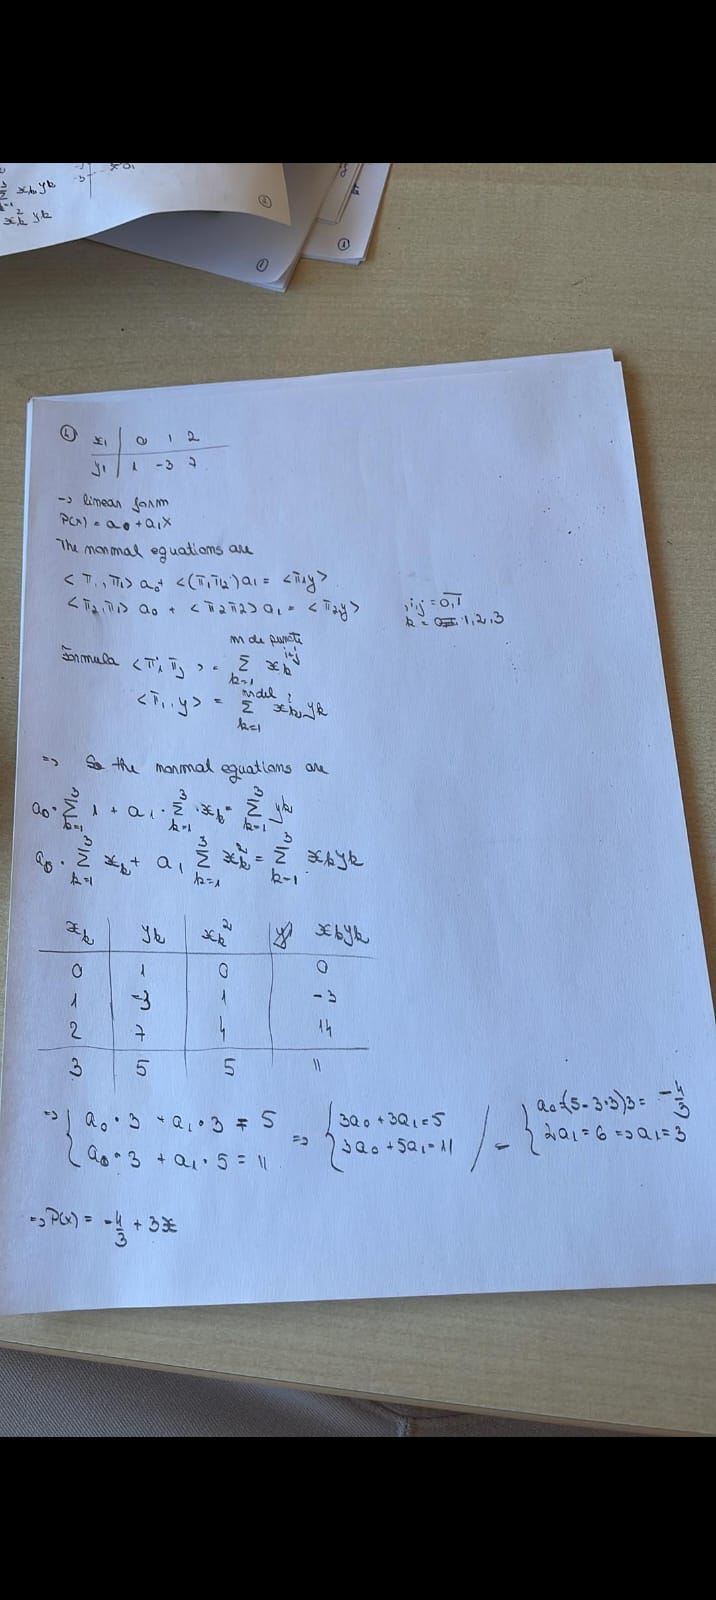 3
Σ xk yk
k=1
xk² yk
②
①
①
④ xi | 0 1 2
yi | 1 -3 7
-> linear form
P(x) = a0 + a1x
The normal equations are
<π1, π1> a0 + <(π1, π2)a1 = <π1 y>
<π2, π1> a0 + <π2 π2> a1 = <π2, y>
i,j = 0,1
k = 1, 2, 3
m de puncte
Formula <πi, πj> = Σ xk^i+j
k=1
<πi, y> = Σ xk^i yk
k=1
=> So the normal equations are
a0 · Σ(k=1..3) 1 + a1 · Σ(k=1..3) · xk = Σ(k=1..3) yk
a0 · Σ(k=1..3) xk + a1 Σ(k=1..3) xk² = Σ(k=1..3) xk yk
xk | yk | xk² | xk yk
0 | 1 | 0 | 0
1 | -3 | 1 | -3
2 | 7 | 4 | 14
3 | 5 | 5 | 11
=> { a0 · 3 + a1 · 3 = 5 => { 3a0 + 3a1 = 5 / - { a0 = (5 - 3·3)3 = -4/3
a0 · 3 + a1 · 5 = 11 3a0 + 5a1 = 11 2a1 = 6 => a1 = 3
=> P(x) = -4/3 + 3x